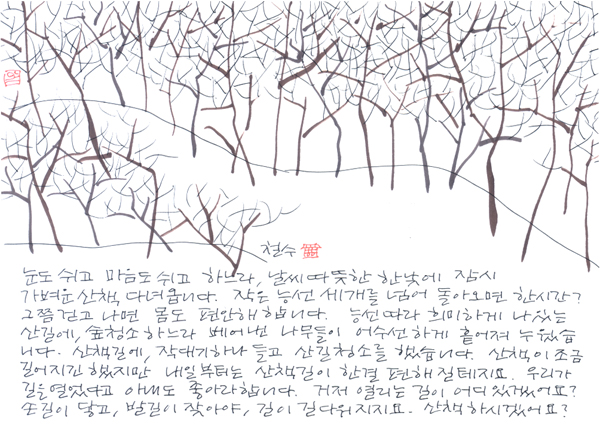 철수
눈도 쉬고 마음도 쉬고 하느라, 날씨 따뜻한 한낮에 잠시
가벼운 산책 다녀옵니다. 작은 능선 세개를 넘어 돌아오면 한시간?
그쯤 걷고 나면 몸도 편안해 합니다. 능선따라 희미하게 나 있는
산길에, 숲청소 하느라 베어낸 나무들이 어수선하게 흩어져 누웠습
니다. 산책길에, 작대기하나 들고 산길청소를 했습니다. 산책이 조금
길어지긴 했지만 내일부터는 산책길이 한결 편해질테지요. 우리가
길을 열었다고 아내도 좋아라 합니다. 거저 열리는 길이 어디 있겠어요?
손길이 닿고, 발길이 잦아야, 길이 길다워지지요. 산책하시겠어요?